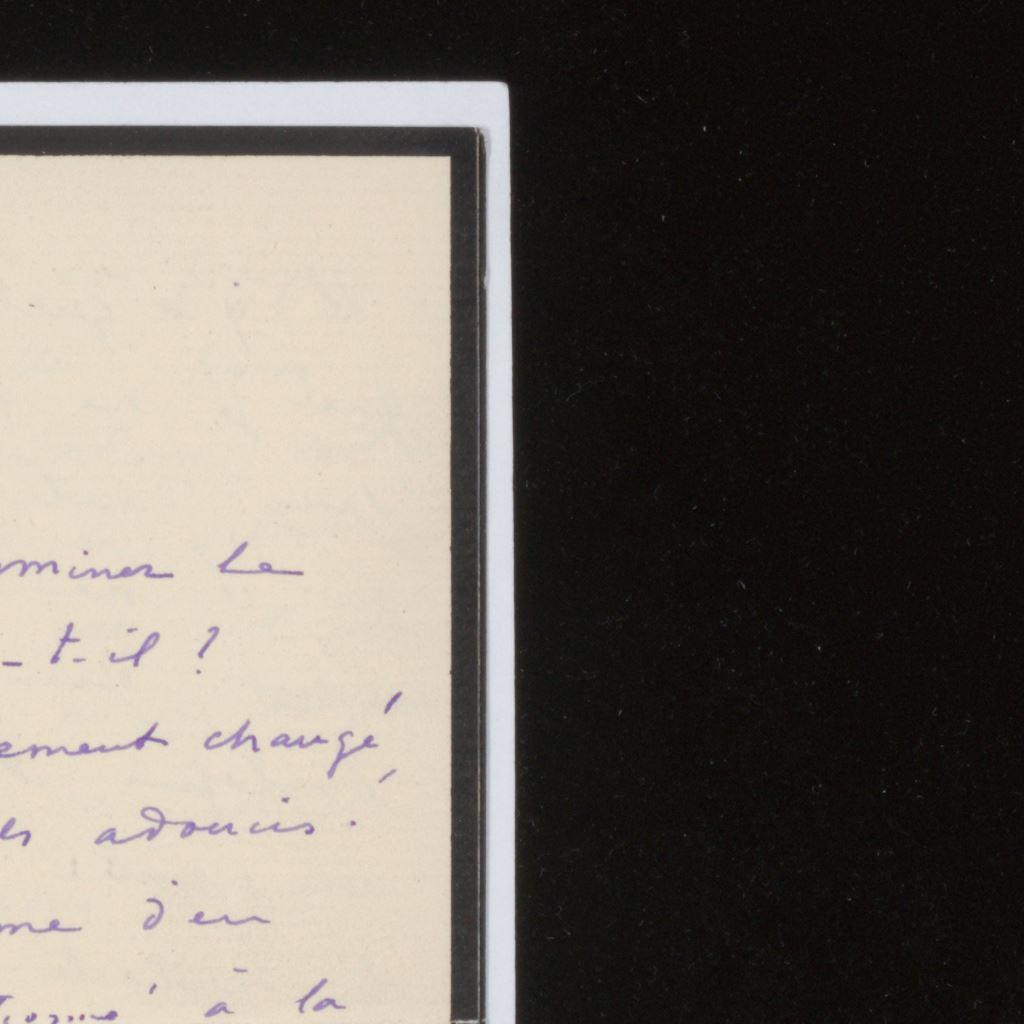 miner le
-t-il ?
ement changé,
adoucis.
me d'en
à la